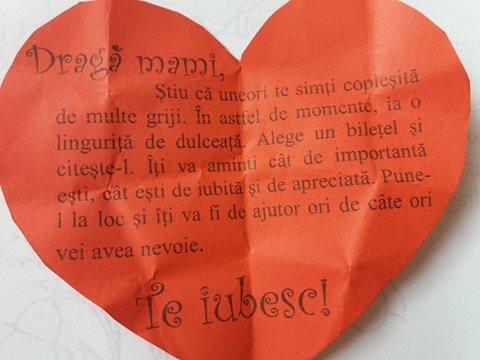 Dragă mami,
Ştiu că uneori te simţi copleşită
de multe griji. În astfel de momente, ia o
linguriţă de dulceaţă. Alege un bileţel şi
citeşte-l. Îţi va aminti cât de importantă
eşti, cât eşti de iubită şi de apreciată. Pune-
l la loc şi îţi va fi de ajutor ori de câte ori
vei avea nevoie.
Te iubesc!